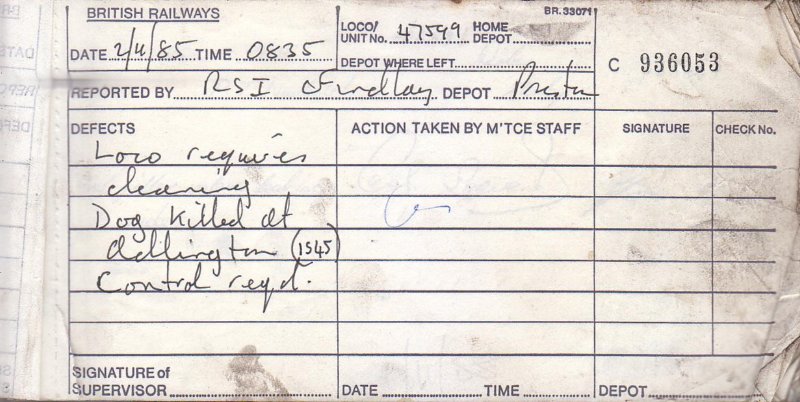 BRITISH RAILWAYS
BR.33071
LOCO/ UNIT No. 47599 HOME DEPOT
DATE 2/4/85 TIME 0835
DEPOT WHERE LEFT
C 936053
REPORTED BY RSI Findlay DEPOT Preston
DEFECTS
ACTION TAKEN BY M'TCE STAFF
SIGNATURE
CHECK No.
Loco requires
cleaning
Dog killed at
Adlington (1545)
Control reqd.
SIGNATURE of
SUPERVISOR
DATE
TIME
DEPOT